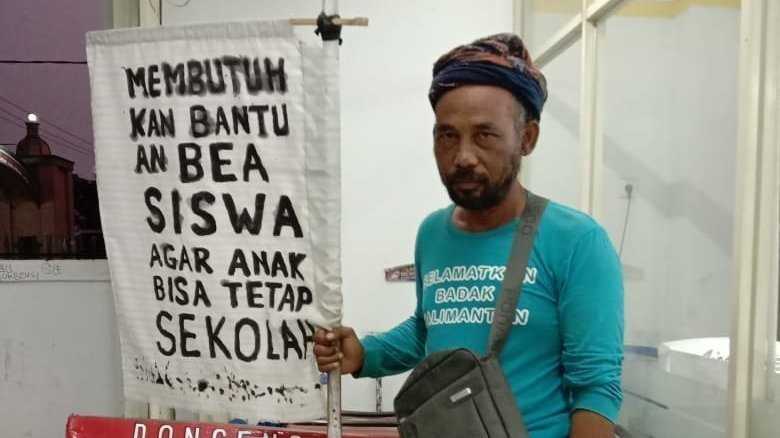 MEMBUTUH
KAN BANTU
AN BEA
SISWA
AGAR ANAK
BISA TETAP
SEKOLAH
SELAMATKAN
BADAK
KALIMANTAN
DONGENG